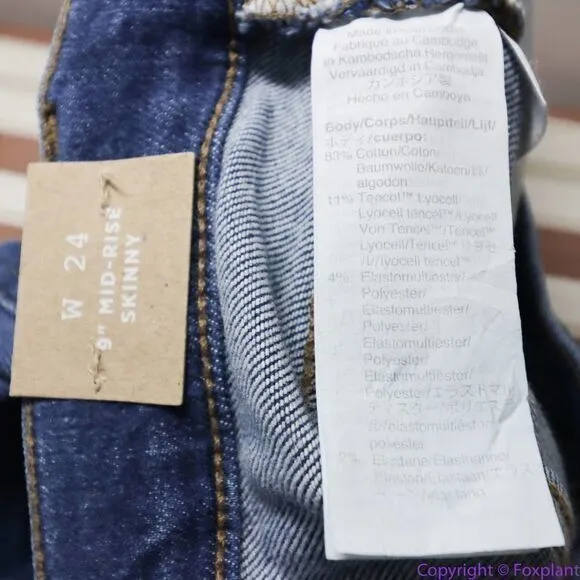 W 24
9" MID-RISE
SKINNY
Made in
Fabriqué au Cambodge
in Kambodscha Hergestellt
Vervaardigd in Cambodja
カンボジア製
Hecho en Camboya
Body/Corps/Hauptteil/Lijf/
ボディ/cuerpo:
83% Cotton/Coton/
Baumwolle/Katoen/綿/
algodon
11% Tencel™ Lyocell
Lyocell tencel™/Lyocell
Von Tencel™/Tencel™
Lyocell/Tencel™
/lyocell tencel™
4% Elastomultiester/
Polyester/
Elastomultiester/
Polyester/
Elastomultiester/
Polyester/
Elastomultiester/
Polyester/エラストマル
ティエステル/ポリエステ
ル/elastomultiester/
polyester
2% Elastane/Elasthanne/
Elastan/Elastaan/エラス
Copyright © Foxplant